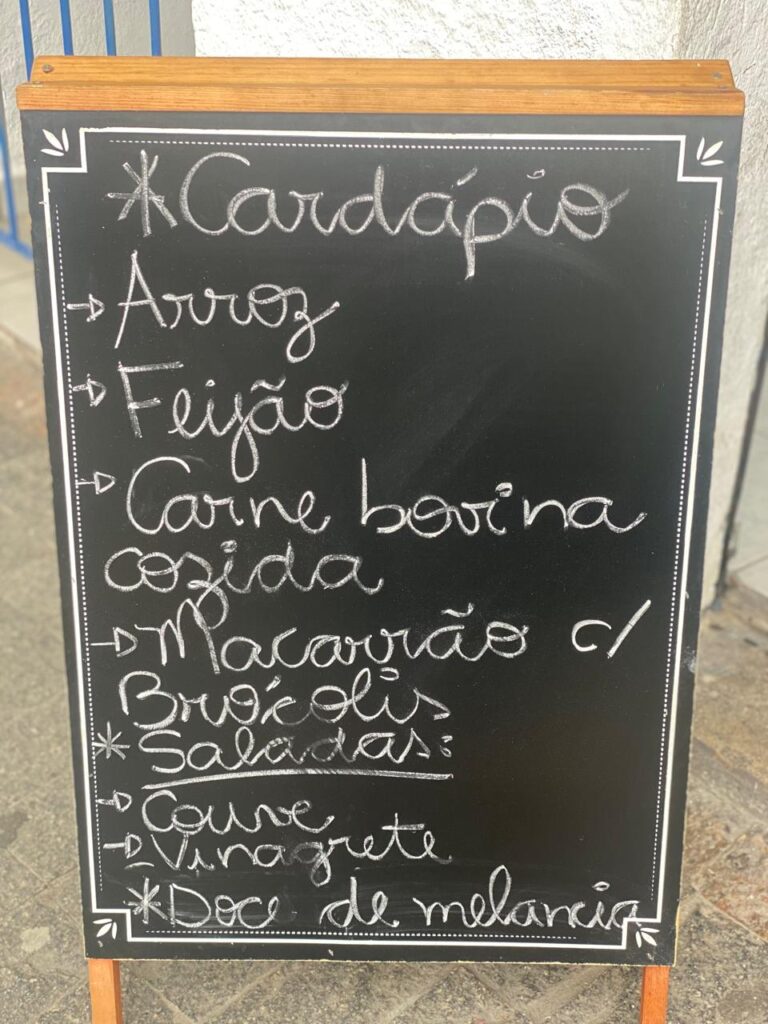 *Cardápio
→ Arroz
→ Feijão
→ Carne bovina
cozida
→ Macarrão c/
Brócolis
* Saladas:
→ Couve
→ Vinagrete
*Doce de melancia